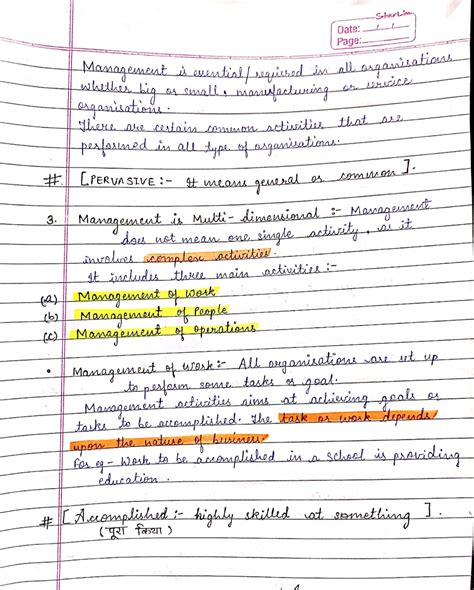 Date: / /
Page:
Management is essential/required in all organisations
whether big or small, manufacturing or service
organisations.
There are certain common activities that are
performed in all type of organisations.
# [PERVASIVE :- It means general or common].
3. Management is Multi-dimensional :- Management
does not mean one single activity, as it
involves complex activities.
It includes three main activities :-
(a) Management of Work
(b) Management of People
(c) Management of Operations
• Management of work:- All organisations are set up
to perform some tasks or goal.
Management activities aims at achieving goals or
tasks to be accomplished. The task or work depends
upon the nature of business.
For eg- Work to be accomplished in a school is providing
education.
# [Accomplished :- highly skilled at something].
(पूरा किया)